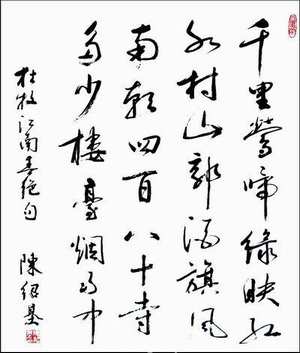 千里莺啼緑映紅
水村山郭酒旗風
南朝四百八十寺
多少樓臺烟雨中
杜牧江南春絶句 陳紹基